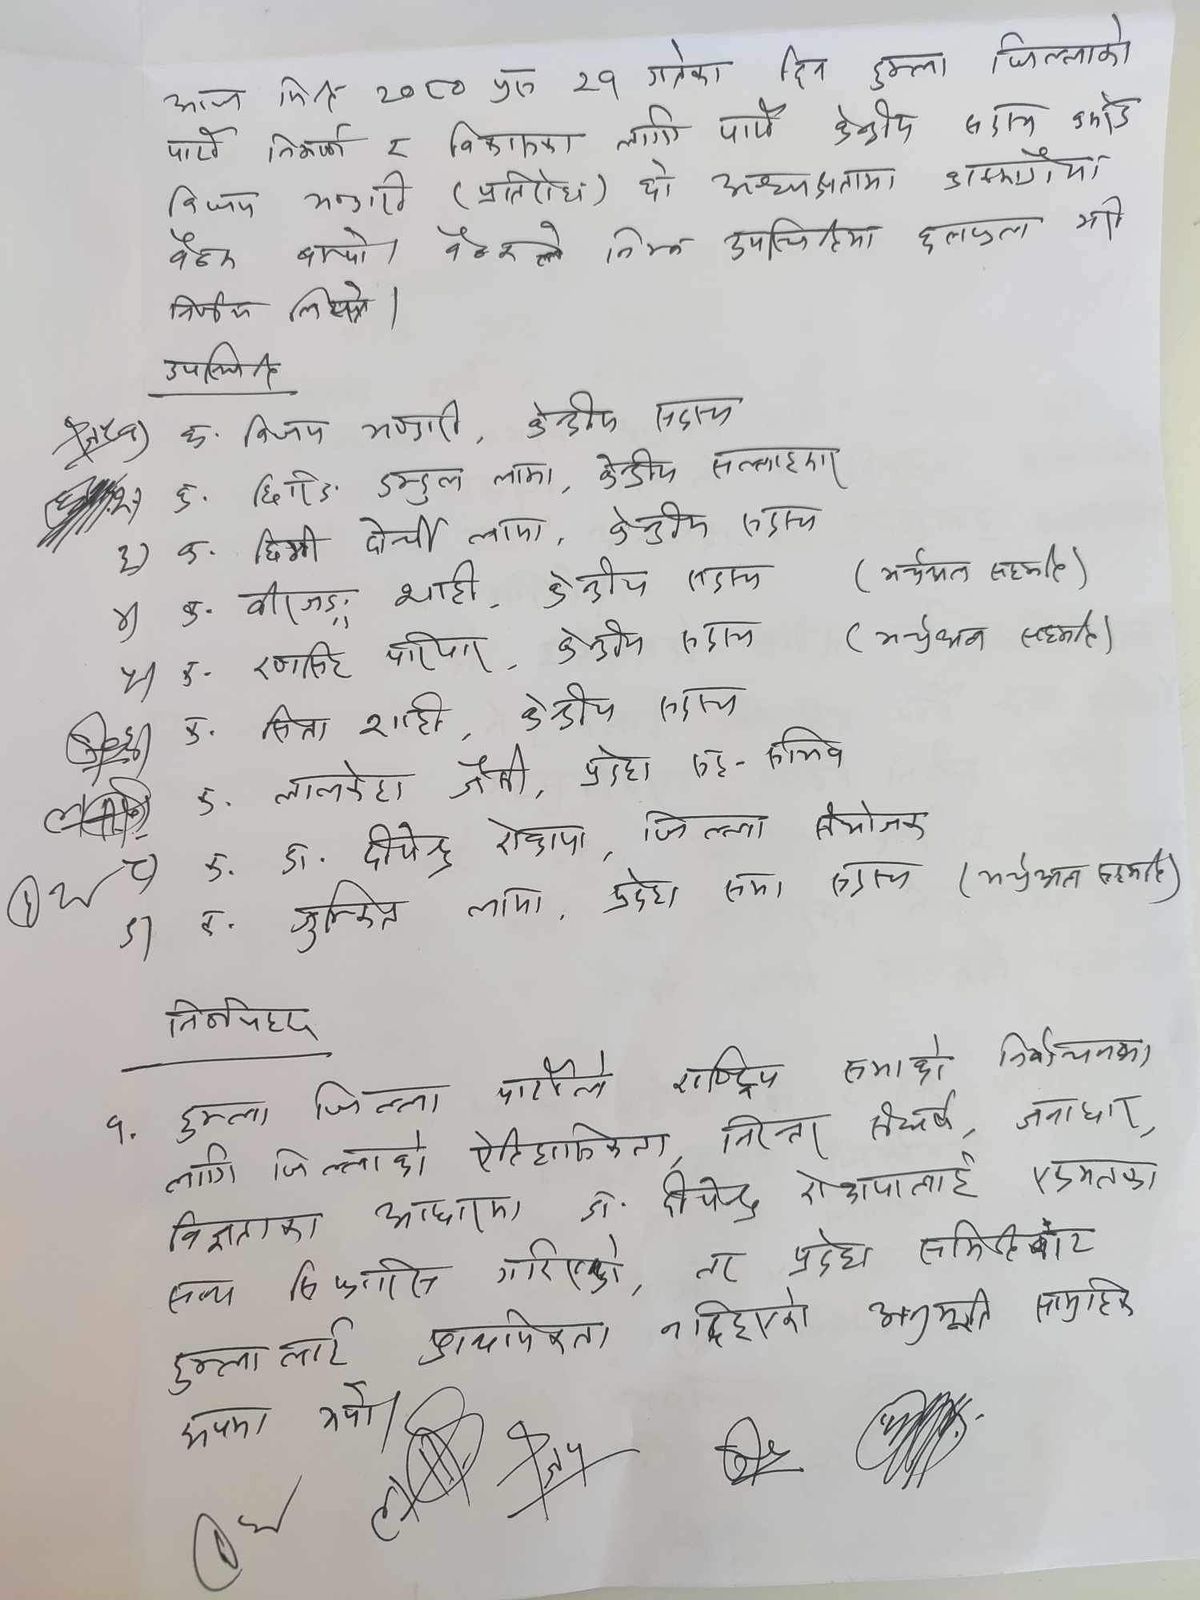 आज मिति २०८० पुस २१ गतेका दिन हुम्ला जिल्लाको
पार्टी निर्माण र विकासका लागि पार्टी केन्द्रीय सदस्य कमरेड
विजय भण्डारी (प्रतिरोध) को अध्यक्षतामा
बैठक बस्यो। बैठकले निम्न उपस्थितिमा छलफल गरी
निर्णय लियो।
उपस्थिति
१) क. विजय भण्डारी, केन्द्रीय सदस्य
२) क. छिरिङ लामा, केन्द्रीय सल्लाहकार
३) क. छिमी दोर्ची लामा, केन्द्रीय सदस्य
४) क. वीरजङ्ग शाही, केन्द्रीय सदस्य (भर्चुअल सहमति)
५) क. रणसिंह परियार, केन्द्रीय सदस्य (भर्चुअल सहमति)
६) क. शाही, केन्द्रीय सदस्य
क. लालकेश जैसी, प्रदेश सह-सचिव
८) क. डा. दीपेन्द्र रोकाया, जिल्ला संयोजक
९) क. लामा, प्रदेश सभा सदस्य (भर्चुअल सहमति)
निर्णयहरू
१. हुम्ला जिल्ला पार्टीले राष्ट्रिय सभाको निर्वाचनका
लागि जिल्लाको ऐतिहासिकता, निरन्तर संघर्ष, जनाधार,
विज्ञताका आधारमा डा. दीपेन्द्र रोकायालाई एकमतका
साथ सिफारिस गरिएको, तर प्रदेश समितिबाट
हुम्लालाई प्राथमिकता नदिइएको अनुभूति सामुहिक
रूपमा गर्यो।